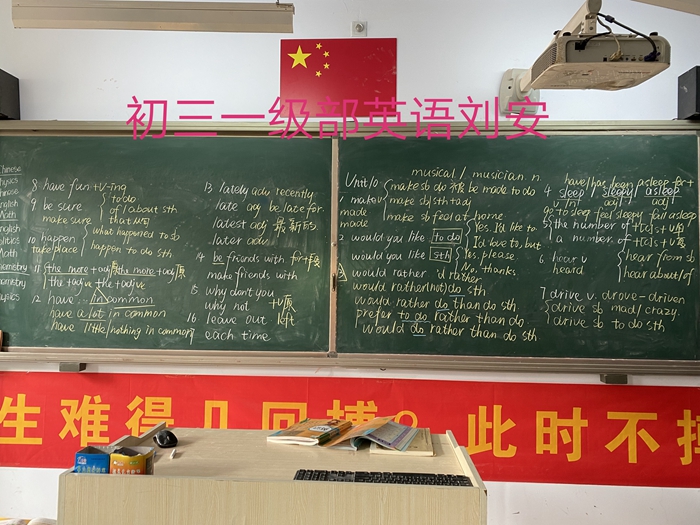 初三一级部英语刘安
Chinese
English
Math
English
Politics
Math
8 have fun + V-ing
9 be sure
make sure
to do
of / about sth
that 从句
10 happen
take place
what happened to sb
happen to do sth
11 the more + adj原 the more + adj原
12 have ... in common
have a lot in common
have little/nothing in common
13 lately adv recently
late adj be late for
latest adj 最新的
later adv
14 be friends with
make friends with
15 why don't you
why not +V原
16 leave out left
17 each time
musical / musician n
Unit 10
1 make v
made
made
make sb do 被 be made to do
make sb/sth + adj
make sb feel at home
2 would you like to do
would you like sth
Yes, I'd like to.
I'd love to, but
Yes, please.
No, thanks.
3 would rather 'd rather
would rather (not) do sth
would rather do than do sth
prefer to do rather than do
would do rather than do sth
have/has been asleep for + t
4 sleep sleepy asleep
go to sleep feel sleepy fall asleep
the number of
a number of
6 hear v
heard
hear from sb
hear about/of
7 drive v. drove - driven
drive sb mad/crazy.
drive sb to do sth
生难得几回搏。此时不